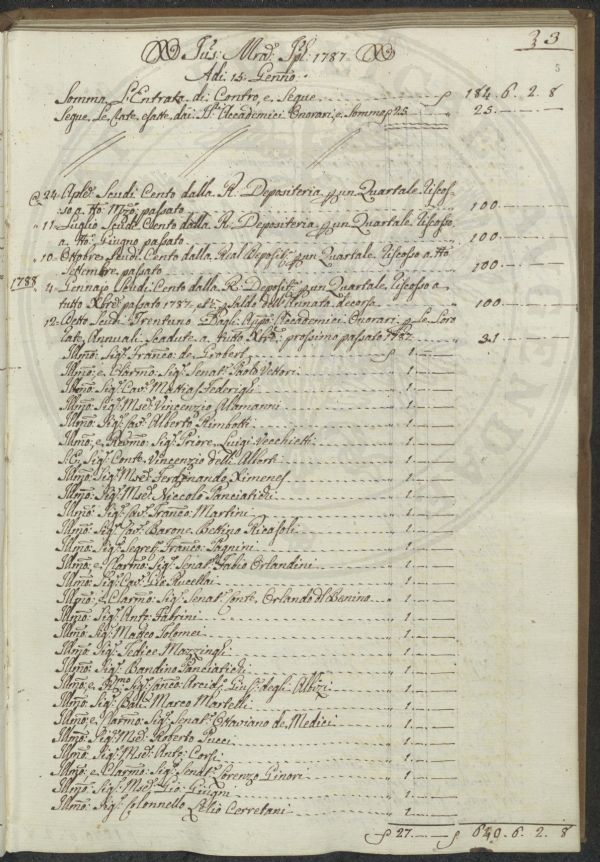 33
5
Adi 15 Genno:
Somma L'Entrata di Contro, e Segue £ 184. 6. 2. 8
Segue Le Tate esatte dai Accademici Onorari, e Somme 25 " 25
@ 24 Aple Scudi Cento dalla R. Depositeria un Quartale riscos-
so a tto Mrzo passato " 100
" 11 Luglio Scudi Cento dalla R. Depositeria un Quartale riscosso
a tto Giugno passato " 100
" 10 Ottobre Scudi Cento dalla Real Deposit. un Quartale riscosso a tto
Settembre passato " 100
1788 " 4 Gennajo Scudi Cento dalla R. Deposit. un Quartale riscosso a
tutto Xbre passato 1787, Saldo dell'Annata decorsa " 100
" 12 Detto Scudi Trentuno Dagli Accademici Onorari Le Loro
tate Annuali Scadute a tutto Xbre prossimo passato 1787 " 31
Illmo: Sigr Franco: de Grobert £ 1
Illmo: e Clarmo: Sigr Senatr Paolo Vettori " 1
Illmo: Sigr Cavr Mattias Federighi " 1
Illmo: Sigr Mse: Vincenzio Alamanni " 1
Illmo: Sigr Cavr Alberto Rimbotti " 1
Illmo: e Revmo: Sigr Priore Luigi Vecchietti " 1
S. E. Sigr Conte Vincenzio degli Alberti " 1
Illmo: Sigr Mse: Ferdinando Ximenes " 1
Illmo: Sigr Mse: Niccolò Panciatichi " 1
Illmo: Sigr Cavr Franco: Martini " 1
Illmo: Sigr Cavr Barone Bettino Ricasoli " 1
Illmo: Sigr Segret. Franco: Pagnini " 1
Illmo: e Clarmo: Sigr Senatr Fabio Orlandini " 1
Illmo: Sigr Cavr Gio Rucellai " 1
Illmo: e Clarmo: Sigr Senatr Conte Orlando del Benino " 1
Illmo: Sigr Anto: Fabrini " 1
Illmo: Sigr Maffeo Tolomei " 1
Illmo: Sigr Jedice Mazzinghi " 1
Illmo: Sigr Bandino Panciatichi " 1
Illmo: e Rmo Sigr Canco Arcid. Gius. degli Albizi " 1
Illmo: Sigr Balì Marco Martelli " 1
Illmo: e Clarmo: Sigr Senatr Ottaviano de Medici " 1
Illmo: Sigr Mse: Roberto Pucci " 1
Illmo: Sigr Mse: Anto: Corsi " 1
Illmo: e Clarmo: Sigr Senatr Lorenzo Ginori " 1
Illmo: Sigr Mse: Gio: Giugni " 1
Illmo: Sigr Colonnello Lelio Cerretani " 1
£ 27 £ 640. 6. 2. 8